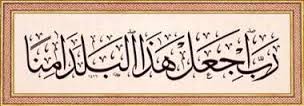 رَبِّ اجْعَلْ هَذَا الْبَلَدَ اٰمِنًا